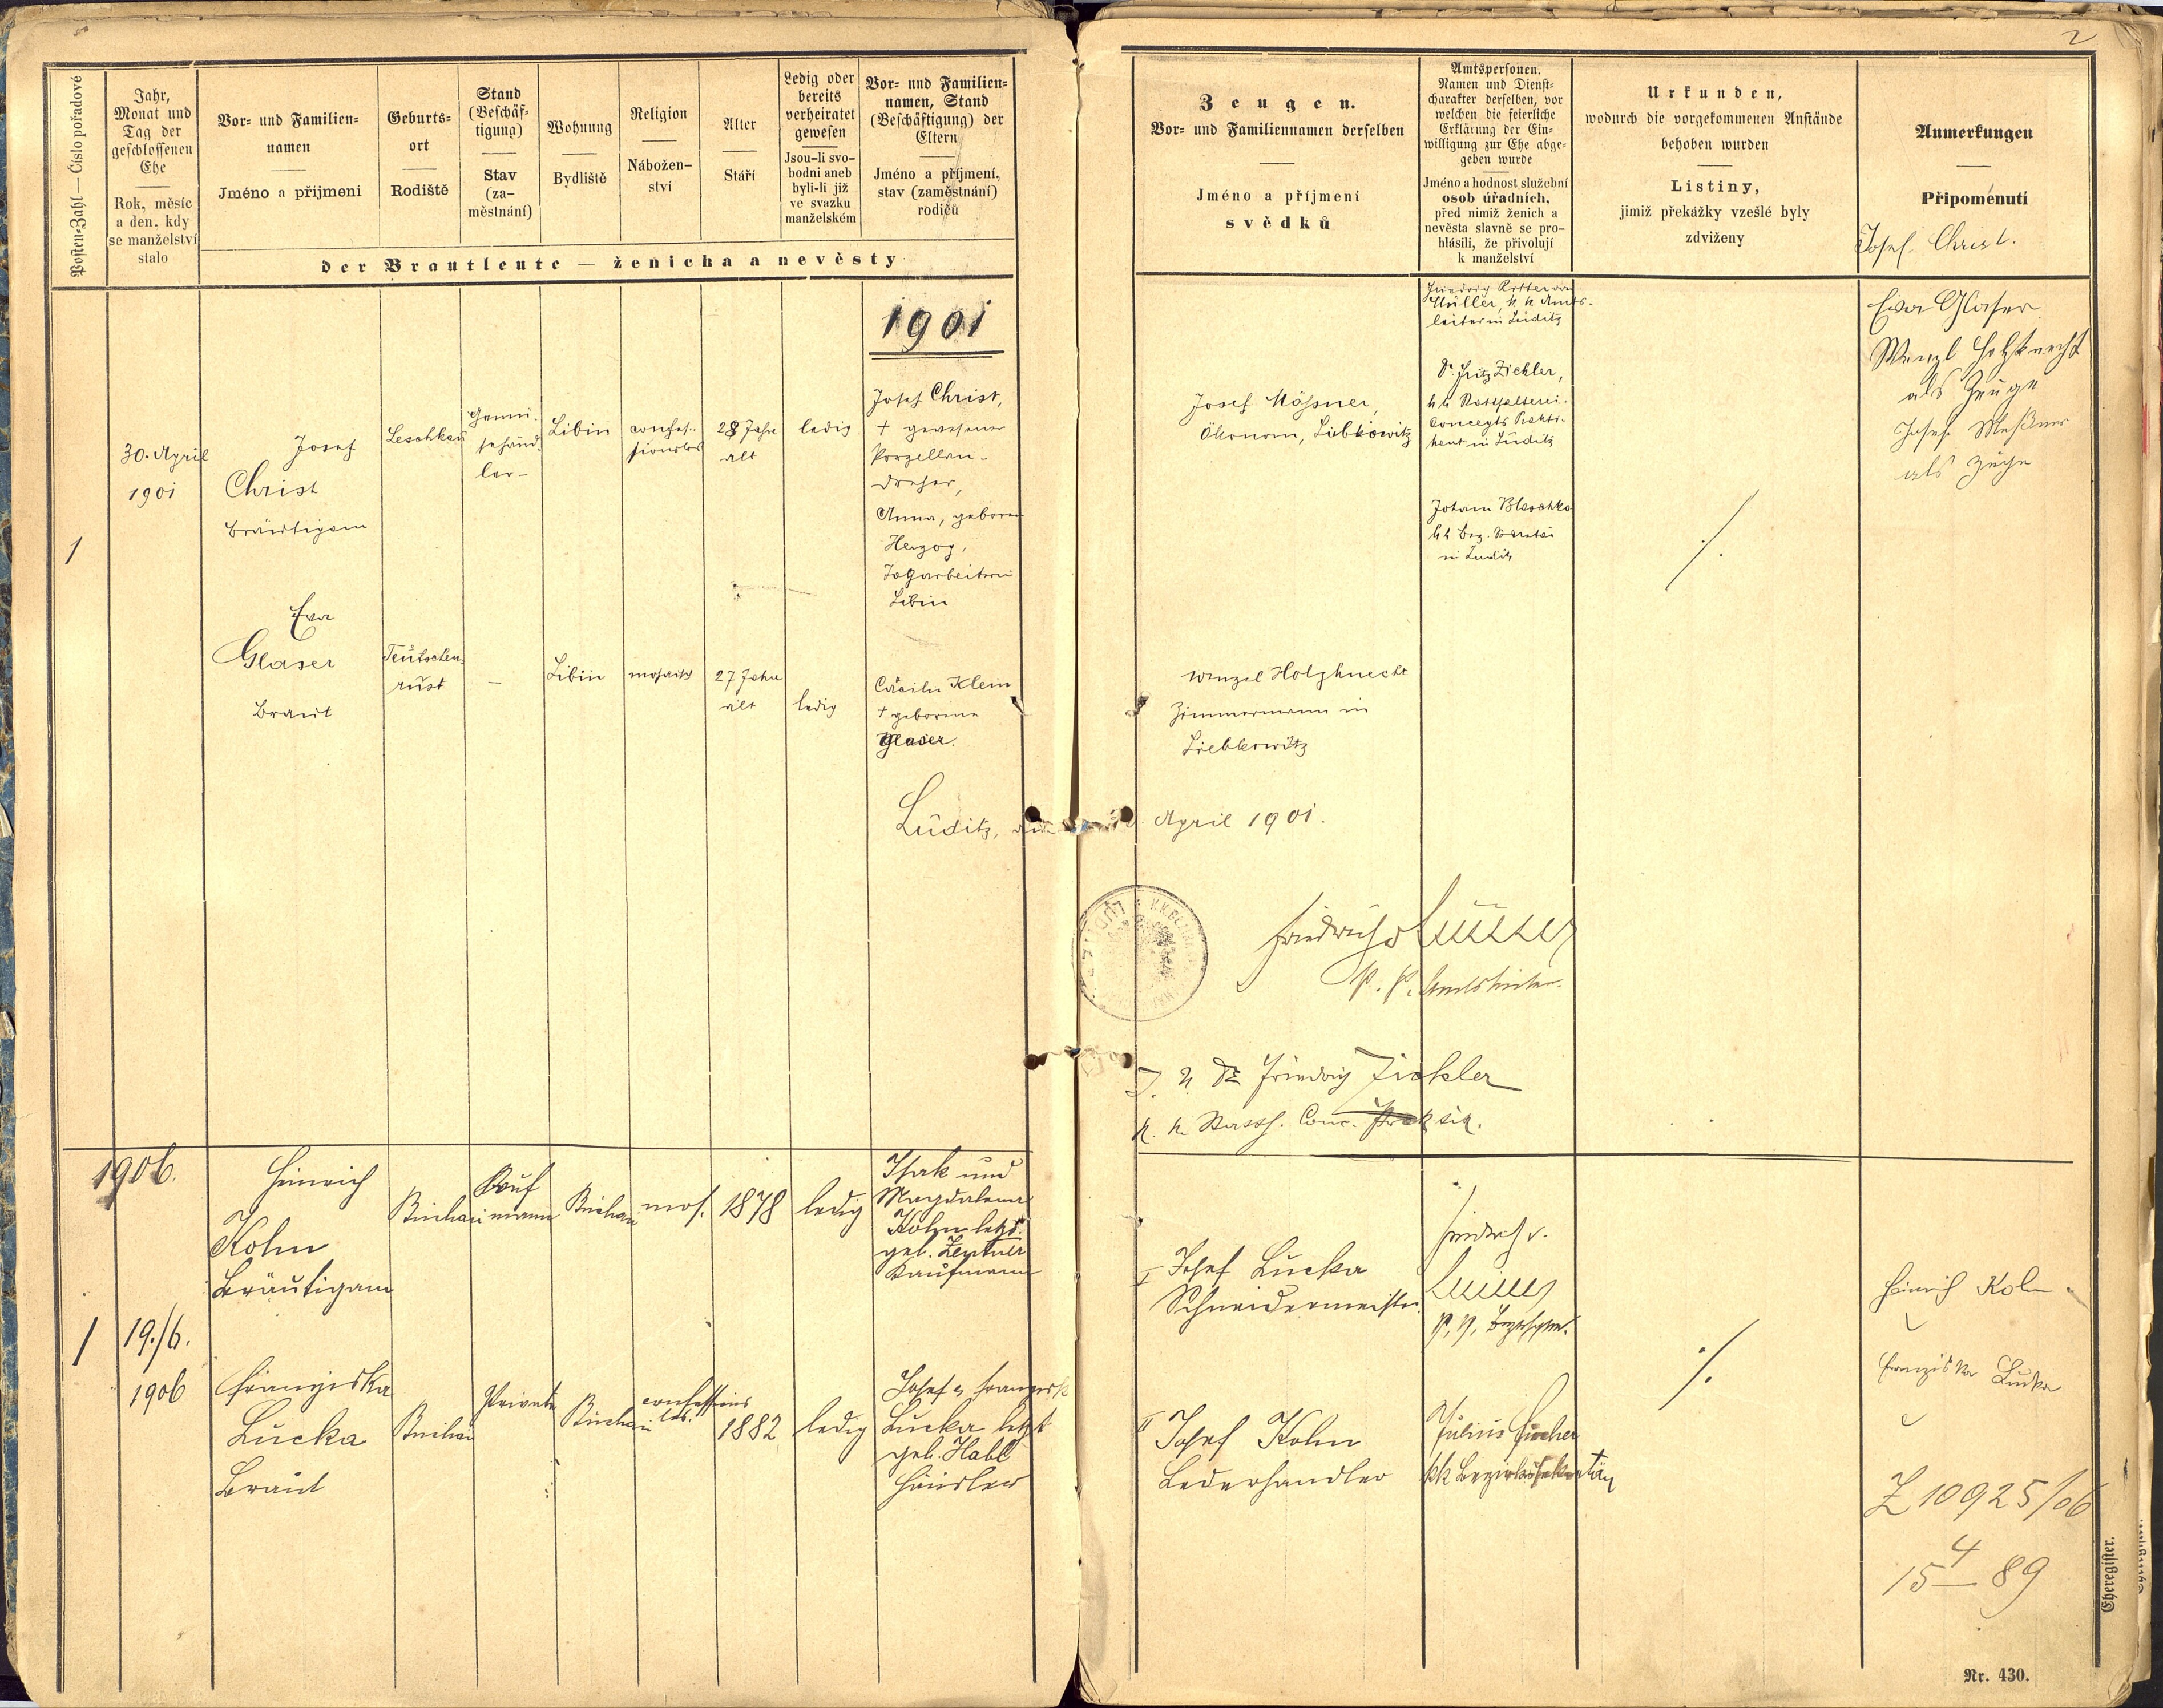 2
Posten-Zahl — Číslo pořadové
Jahr,
Monat und
Tag der
geschlossenen
Ehe
Rok, měsíc
a den, kdy
se manželství
stalo
Vor- und Familien-
namen
Jméno a přijmení
Geburts-
ort
Rodiště
Stand
(Beschäf-
tigung)
Stav
(za-
městnání)
Wohnung
Bydliště
Religion
Nábožen-
ství
Alter
Stáří
Ledig oder
bereits
verheiratet
gewesen
Jsou-li svo-
bodni aneb
byli-li již
ve svazku
manželském
Vor- und Familien-
namen, Stand
(Beschäftigung) der
Eltern
Jméno a příjmení,
stav (zaměstnání)
rodičů
der Brautleute — ženicha a nevěsty
Zeugen.
Vor- und Familiennamen derselben
Jméno a příjmení
svědků
Amtspersonen.
Namen und Dienst-
charakter derselben, vor
welchen die feierliche
Erklärung der Ein-
willigung zur Ehe abge-
geben wurde
Jméno a hodnost služební
osob úřadních,
před nimiž ženich a
nevěsta slavně se pro-
hlásili, že přivolují
k manželství
Urkunden,
wodurch die vorgekommenen Anstände
behoben wurden
Listiny,
jimiž překážky vzešlé byly
zdviženy
Anmerkungen
Připomenutí
Josef Christ.
1901
1
30. April
1901
Josef
Christ
Bräutigam
Leschkau
Gemü-
sehänd-
ler-
Libin
confes-
sionslos
28 Jahre
alt
ledig
Josef Christ,
† gewesener
Porzellan-
dreher,
Anna, geborene
Herzog,
Tagarbeiterin
Libin
Eva
Glaser
Braut
Teutschen-
rust
—
Libin
mosaisch
27 Jahre
alt
ledig
Cäcilie Klein
† geborene
Glaser.
Josef Mößner,
Ökonom, Libkowitz
Wenzel Holzknecht
Zimmermann in
Liebkowitz
Friedrich Ritter von
Müller, k. k. Amts-
leiter in Luditz
Dr. Fritz Zickler,
k k Statthalterei-
Concepts Prakti-
kant in Luditz
Johann Blaschka
k k Bez. Sekretär
in Luditz
./.
Eva Glaser
Wenzl Holzknecht
als Zeuge
Josef Meßner
als Zeuge
Luditz, April 1901.
Friedrich v Müller
k. k. Amtsleiter.
Dr Friedrich Zickler
k. k. Statth. Conc. Praktik.
1906.
1
19./6.
1906
Heinrich
Kohn
Bräutigam
Buchau
Kauf
mann
Buchau
mos.
1878
ledig
Isak und
Magdalena
Kohn letzt.
geb. Zentner
Kaufmann
Franziska
Lucka
Braut
Buchau
Private
Buchau
confessions
los.
1882
ledig
Josef &
Lucka letzt
geb. Habl
Händler
I Josef Lucka
Schneidermeister.
II Josef Kohn
Lederhandler
Friedrich v.
Müller
Julius Fischer
kk Bezirkssekretär
./.
Heinrich Kohn
Franziska Lucka
Z 10925/06
4
15 — 89
Ehregister.
Nr. 430.